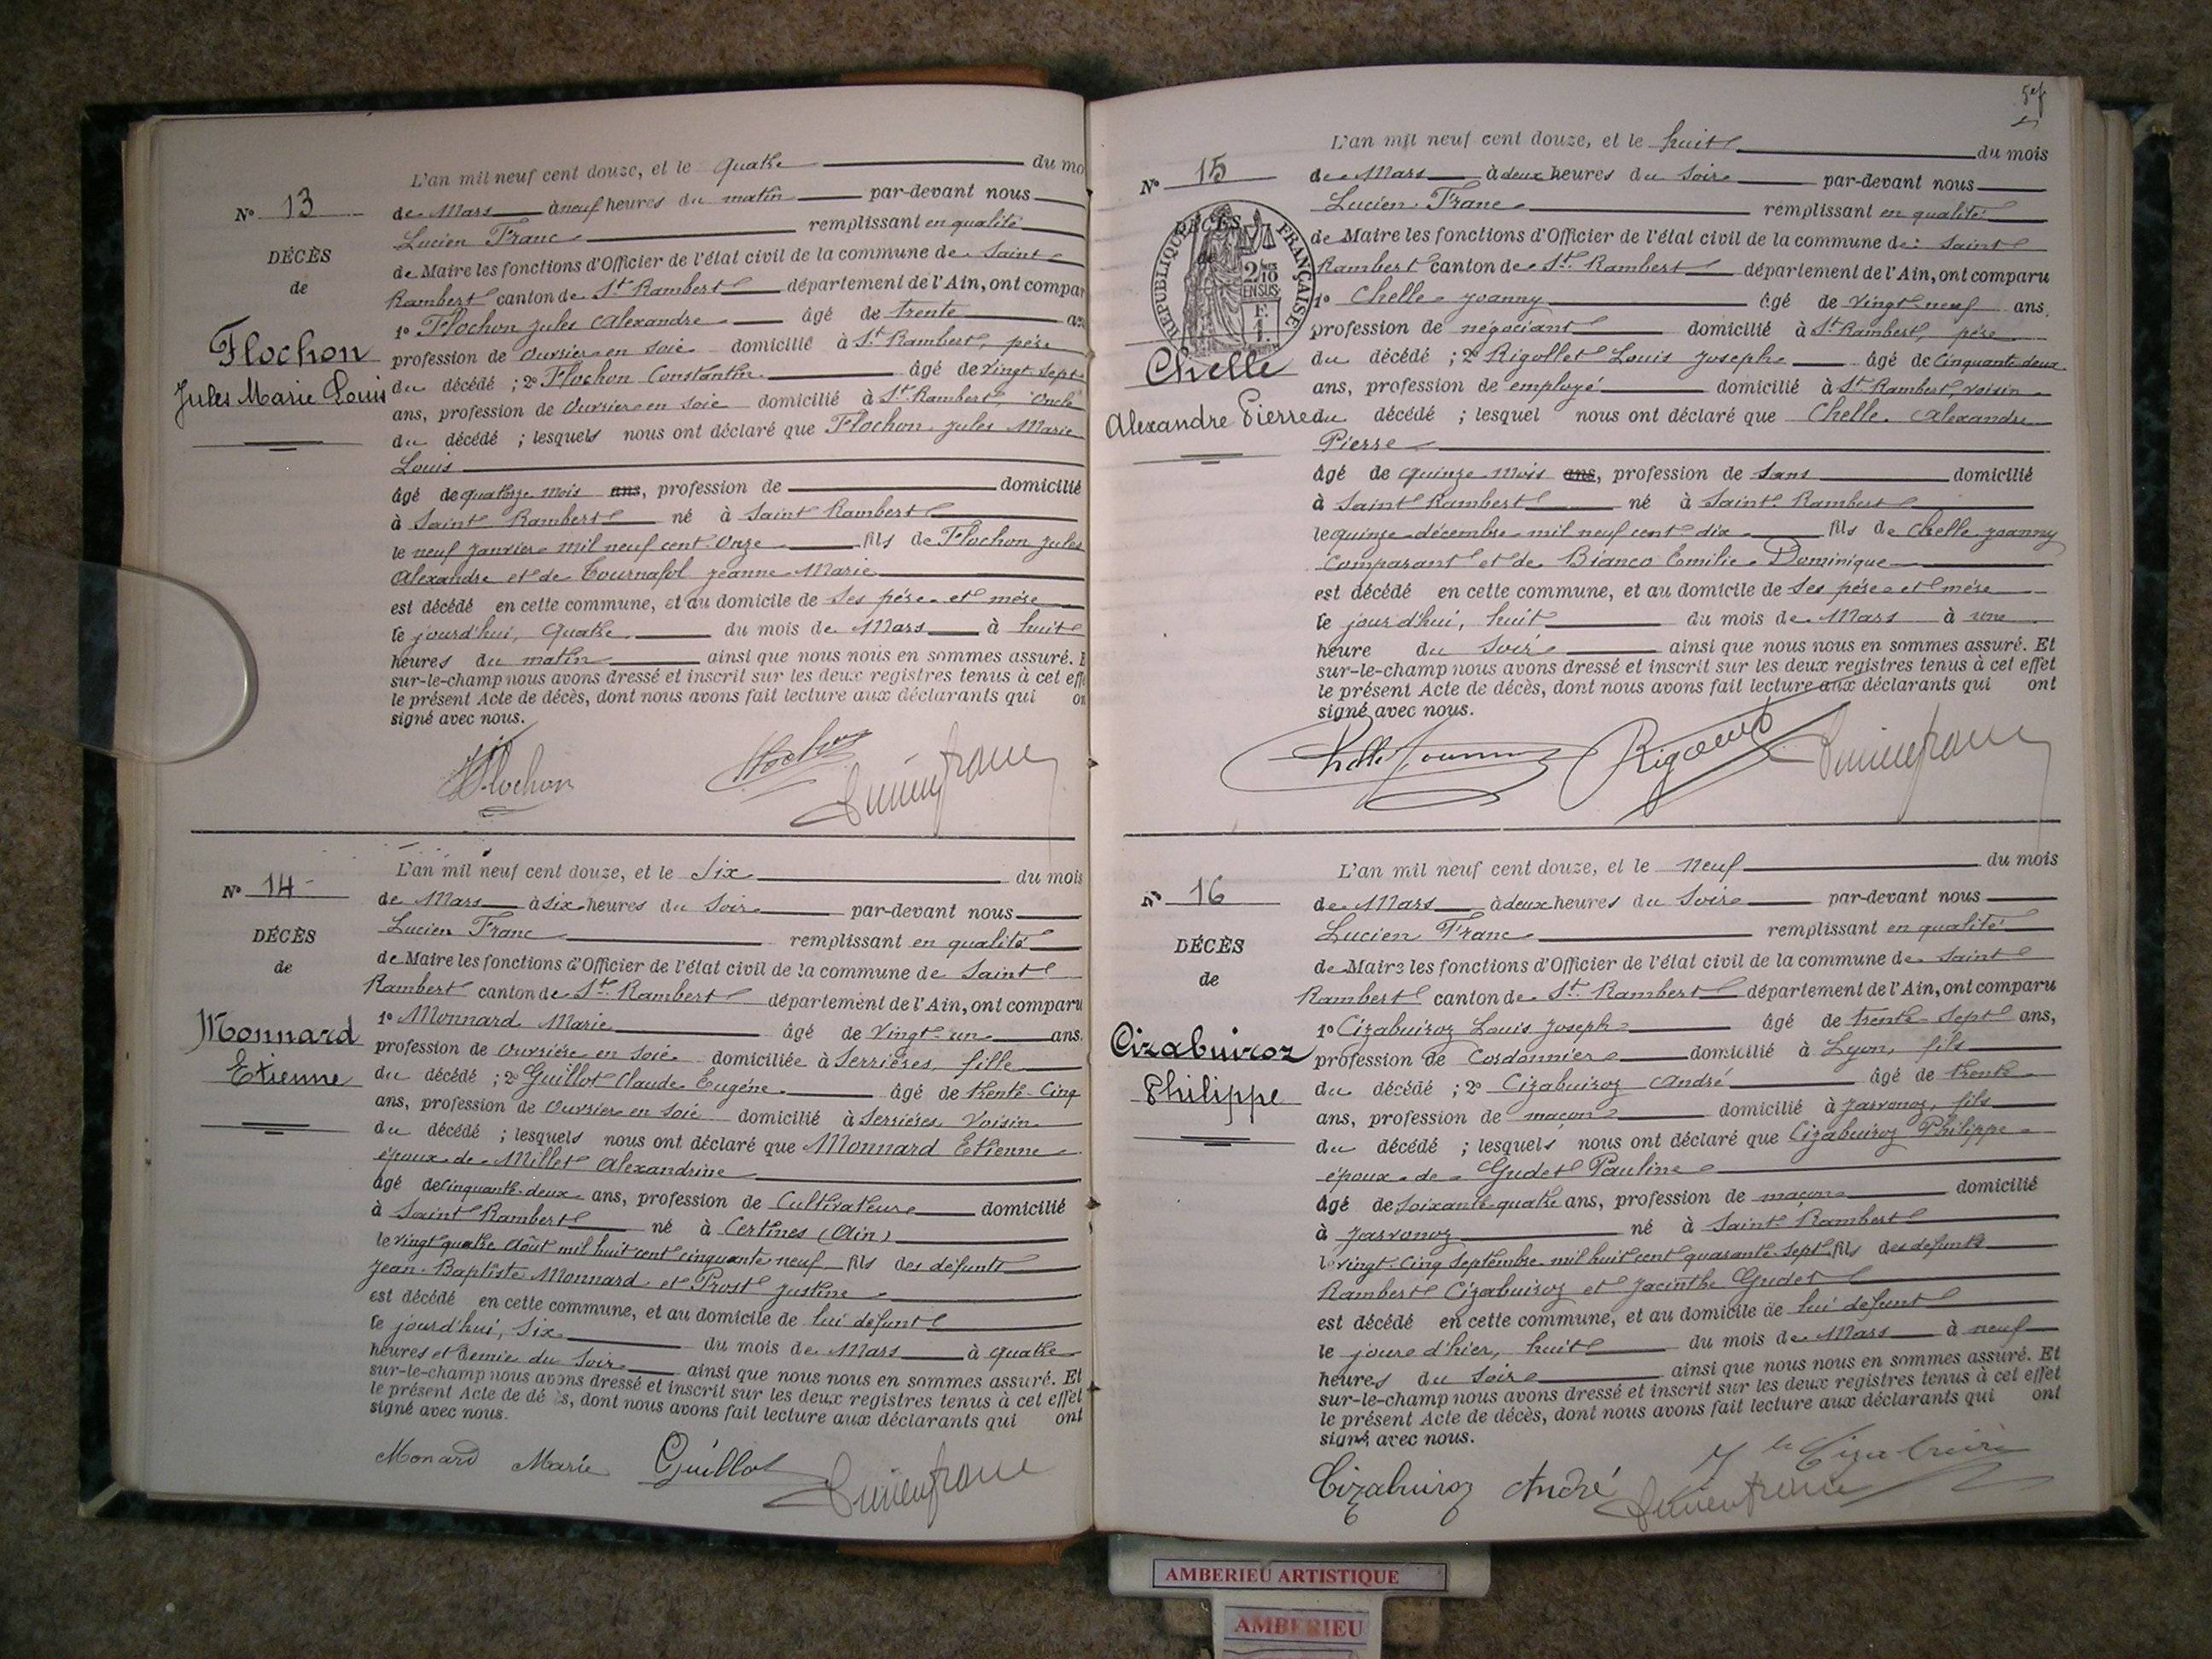 L'an mil neuf cent douze, et le quatre du mo
N° 13
de Mars à neuf heures du matin par-devant nous
Lucien Franc remplissant en qualité
DÉCÈS
de Maire les fonctions d'Officier de l'état civil de la commune de Saint
de
Rambert canton de St. Rambert département de l'Ain, ont compar
Flochon
Jules Marie Louis
1° Flochon Jules Alexandre âgé de trente an
profession de ouvrier en soie domicilié à St. Rambert, père
du décédé ; 2° Flochon Constantin âgé de vingt sept
ans, profession de ouvrier en soie domicilié à St. Rambert, oncle
du décédé ; lesquels nous ont déclaré que Flochon Jules Marie
Louis
âgé de quatorze mois ans, profession de domicilié
à Saint Rambert né à Saint Rambert
le neuf janvier mil neuf cent onze fils de Flochon Jules
Alexandre et de Tournafol Jeanne Marie
est décédé en cette commune, et au domicile de ses père et mère
le jourd'hui, quatre du mois de Mars à huit
heures du matin ainsi que nous nous en sommes assuré. E
sur-le-champ nous avons dressé et inscrit sur les deux registres tenus à cet effe
le présent Acte de décès, dont nous avons fait lecture aux déclarants qui on
signé avec nous.
Flochon Flochon Lucien Franc
L'an mil neuf cent douze, et le six du mois
N° 14
de Mars à six heures du soir par-devant nous
Lucien Franc remplissant en qualité
DÉCÈS
de Maire les fonctions d'Officier de l'état civil de la commune de Saint
de
Rambert canton de St. Rambert département de l'Ain, ont comparu
Monnard
Etienne
1° Monnard Marie âgé de vingt-un ans.
profession de ouvrière en soie domiciliée à Serrières, fille
du décédé ; 2° Guillot Claude Eugène âgé de trente-cinq
ans, profession de ouvrier en soie domicilié à Serrières, voisin
du décédé ; lesquels nous ont déclaré que Monnard Etienne
époux de Millet Alexandrine
âgé de cinquante-deux ans, profession de cultivateur domicilié
à Saint Rambert né à Certines (Ain)
le vingt quatre août mil huit cent cinquante neuf fils des défunts
Jean-Baptiste Monnard et Prost Justine
est décédé en cette commune, et au domicile de lui défunt
le jourd'hui, six du mois de Mars à quatre
heures et demie du soir ainsi que nous nous en sommes assuré. Et
sur-le-champ nous avons dressé et inscrit sur les deux registres tenus à cet effet
le présent Acte de dé ès, dont nous avons fait lecture aux déclarants qui ont
signé avec nous.
Monard Marie Guillot Lucien Franc
L'an mil neuf cent douze, et le huit du mois
N° 15
de Mars à deux heures du soir par-devant nous
Lucien Franc remplissant en qualité
DÉCÈS
de
RÉPUBLIQUE FRANÇAISE
2/10 EN SUS
F. 1.
de Maire les fonctions d'Officier de l'état civil de la commune de : Saint
Rambert canton de St. Rambert département de l'Ain, ont comparu
1° Chelle Joanny âgé de vingt neuf ans.
profession de négociant domicilié à St Rambert, père
Chelle
Alexandre Pierre
du décédé ; 2° Rigollet Louis Joseph âgé de cinquante deux
ans, profession de employé domicilié à St Rambert, voisin
du décédé ; lesquel nous ont déclaré que Chelle Alexandre
Pierre
âgé de quinze mois ans, profession de sans domicilié
à Saint Rambert né à Saint Rambert
le quinze décembre mil neuf cent dix fils de Chelle Joanny
comparant et de Bianco Emilie Dominique
est décédé en cette commune, et au domicile de ses père et mère
le jourd'hui, huit du mois de Mars à une
heure du soir ainsi que nous nous en sommes assuré. Et
sur-le-champ nous avons dressé et inscrit sur les deux registres tenus à cet effet
le présent Acte de décès, dont nous avons fait lecture aux déclarants qui ont
signé avec nous.
Chelle Joanny Rigollet Lucien Franc
L'an mil neuf cent douze, et le neuf du mois
N° 16
de Mars à deux heures du soir par-devant nous
Lucien Franc remplissant en qualité
DÉCÈS
de Maire les fonctions d'Officier de l'état civil de la commune de Saint
de
Rambert canton de St. Rambert département de l'Ain, ont comparu
Cizabuiroz
Philippe
1° Cizabuiroz Louis Joseph âgé de trente sept ans,
profession de cordonnier domicilié à Lyon, fils
du décédé ; 2° Cizabuiroz André âgé de trente
ans, profession de maçon domicilié à Javronoz, fils
du décédé ; lesquels nous ont déclaré que Cizabuiroz Philippe
époux de Gudet Pauline
âgé de soixante-quatre ans, profession de maçon domicilié
à Javronoz né à Saint Rambert
le vingt-cinq septembre mil huit cent quarante-sept fils des défunts
Rambert Cizabuiroz et Jacinthe Gudet
est décédé en cette commune, et au domicile de lui défunt
le jour d'hier, huit du mois de Mars à neuf
heures du soir ainsi que nous nous en sommes assuré. Et
sur-le-champ nous avons dressé et inscrit sur les deux registres tenus à cet effet
le présent Acte de décès, dont nous avons fait lecture aux déclarants qui ont
signé avec nous.
Cizabuiroz André Lucien Franc
AMBERIEU ARTISTIQUE
AMBERIEU